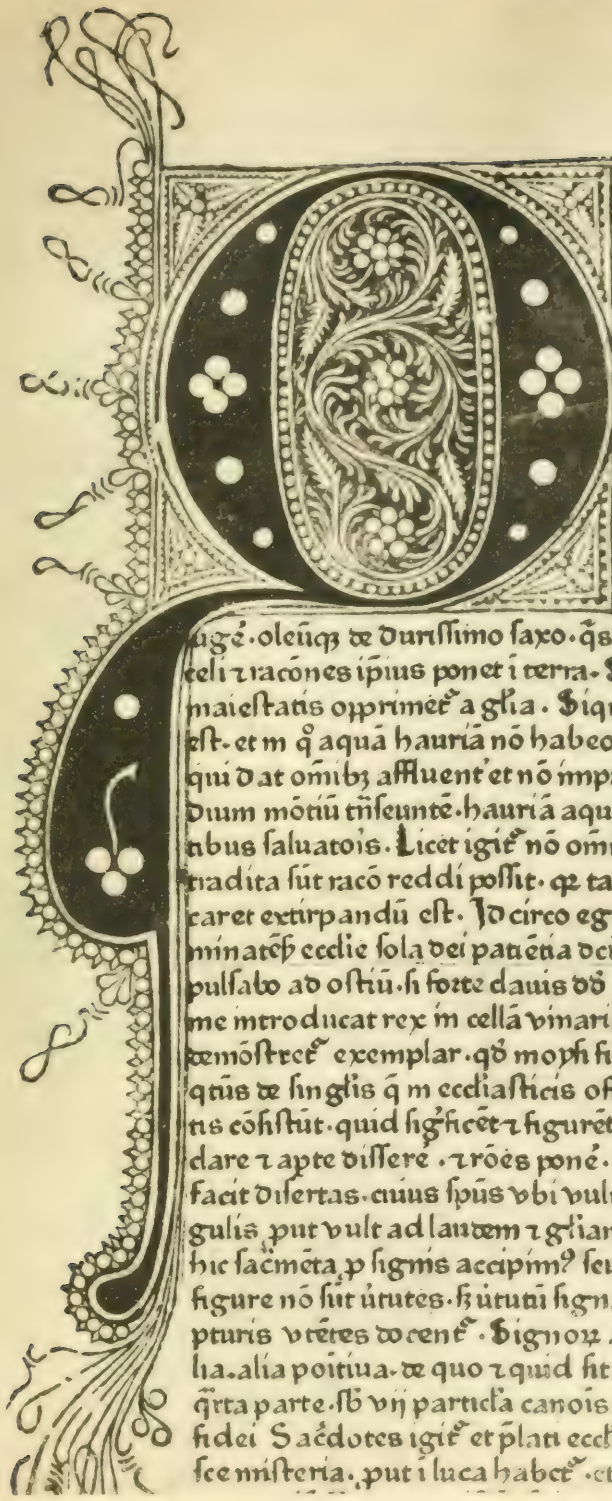 Q
ugē·oleūqꝫ de durissimo saxo·q̄s
celi ⁊ racōnes ip̄ius ponet i terra·
maiestatis opprimet᷑ a gl̄ia · Siqu
est·et m qͦ aquā hauriā nō habeo
qui dat om̄ibꝫ affluent᾽ et nō imp
dium mōtiū tn̄seuntē·hauriā aqu
tibus saluatoīs·Licet igit᷑ nō omn
tradita sūt racō reddi possit·qꝛ ta
caret extirpandū est· Idcirco eg
pulsabo ad ostiū·si forte clauis dd̄
me introducat rex in cellā vinari
demōstret᷑ exemplar·qd̄ moysi
qtus de singl̄is q̄ in eccl̄iasticis of
tis cōsistūt·quid sig̅ficēt ⁊ figurēt
clare ⁊ apte dissere᷑ ·⁊ rōēs ponē·
facit disertas·cuius sp̄us vbi vult
gulis ꝓut vult ad laudem ⁊ gl̄iam
hic sac̄mēta ꝓ signis accipimꝰ seu
figure nō sūt v̄tutes·sꝫ v̄tutū sign
pturis vtētes docent᷑ · Signoꝝ
lia·alia poītiua·de quo ⁊ quid sit
q̄rta parte·sb̄ vij particl̄a canoīs
fidei Sac̄dotes igit᷑ et p̄lati eccl
sce misteria·ꝓut i luca habet᷑·et